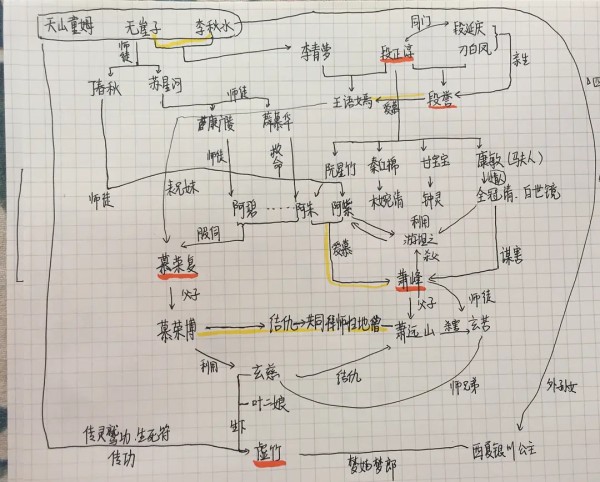 天山童姥 无崖子 李秋水
师徒
同门
段延庆
刀白凤
李青萝
段正淳
亲生
丁春秋 苏星河
师徒
王语嫣
爱慕
段誉
康广陵 薛慕华
师徒
救命
阮星竹 秦红棉 甘宝宝 康敏(马夫人)
师徒
表兄妹
木婉清 钟灵 全冠清、白世镜
阿碧 阿朱 阿紫
利用
游坦之
服侍
爱慕
杀父
谋害
慕容复
萧峰
父子
父子
师徒
慕容博
结仇→共同拜师扫地僧
萧远山
杀害
玄苦
利用
玄慈
结仇
师兄弟
外孙女
叶二娘
生下
传灵鹫功、生死符
传功
虚竹
梦姑梦郎
西夏银川公主